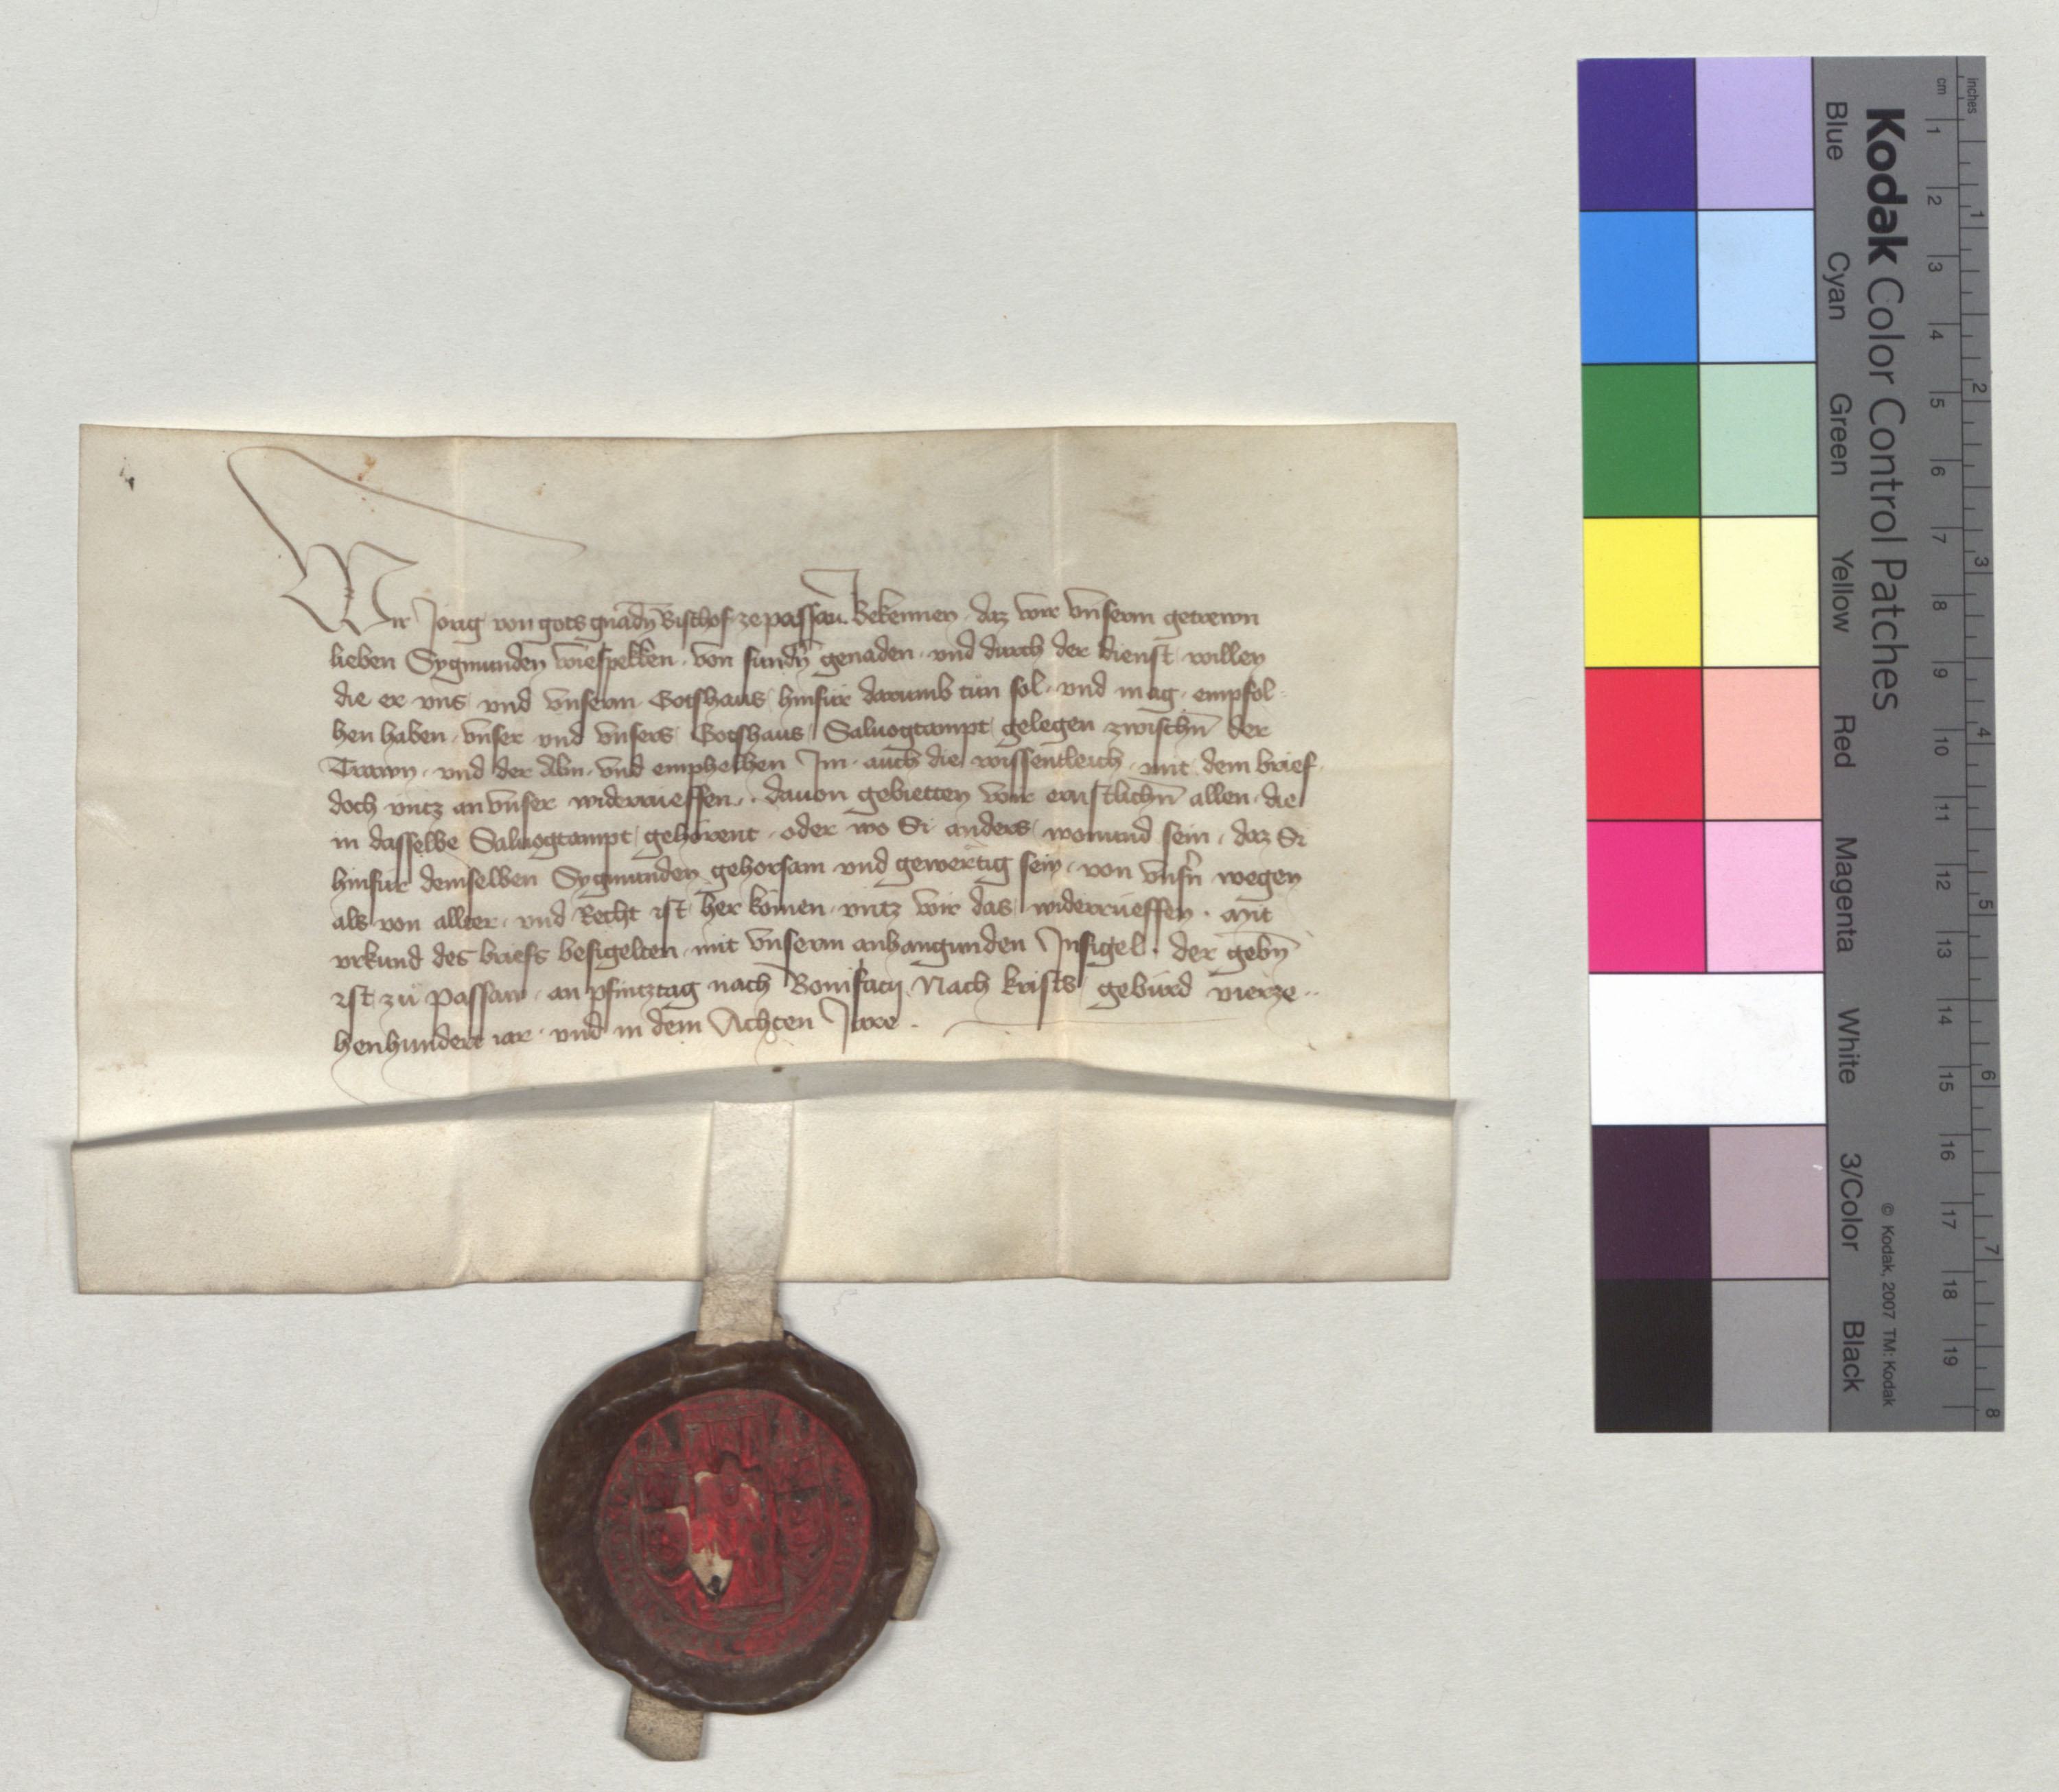 Wir Jorig von gots gnadn̄ Bischof ze passau. Bekennen . daz wir vnserm getrewn
lieben Sygmunden wiespekken . von sundn̄ genaden . vnd durch der dienst willen
die er vns vnd vnserm Gotshaus hinfür darumb tün sol . vnd mag . empfol
hen haben . vnser vnd vnsers Gotshaus Saluogtampt gelegen zwischn̄ der
Trawn . vnd der Albm . vnd emphelhen Im . auch die wissentleich . mit dem brief .
doch vntz an vnser widerrueffen . . dauon gebietten wir ernstlichn̄ allen . die
in dasselbe Saluogtampt gehörent . oder wo Si anders wonund sein . daz Si
hinfür demselben Sygmunden gehorsam vnd gewertig sein . von vnsn̄ wegen
als von allter . vnd Recht ist her komen . vntz wir das widerrüeffen . Mit
vrkund des briefs besigelten . mit vnserm anhangunden Insigel . der gebn̄
ist zu Passaw . an pfintztag nach Bonifacij . Nach krists gebürd vierze ..
henhundert iar . vnd in dem Achten Jare .
Kodak Color Control Patches
Blue Cyan Green Yellow Red Magenta White 3/Color Black
© Kodak, 2007 TM: Kodak
cm 1 2 3 4 5 6 7 8 9 10 11 12 13 14 15 16 17 18 19
inches 1 2 3 4 5 6 7 8